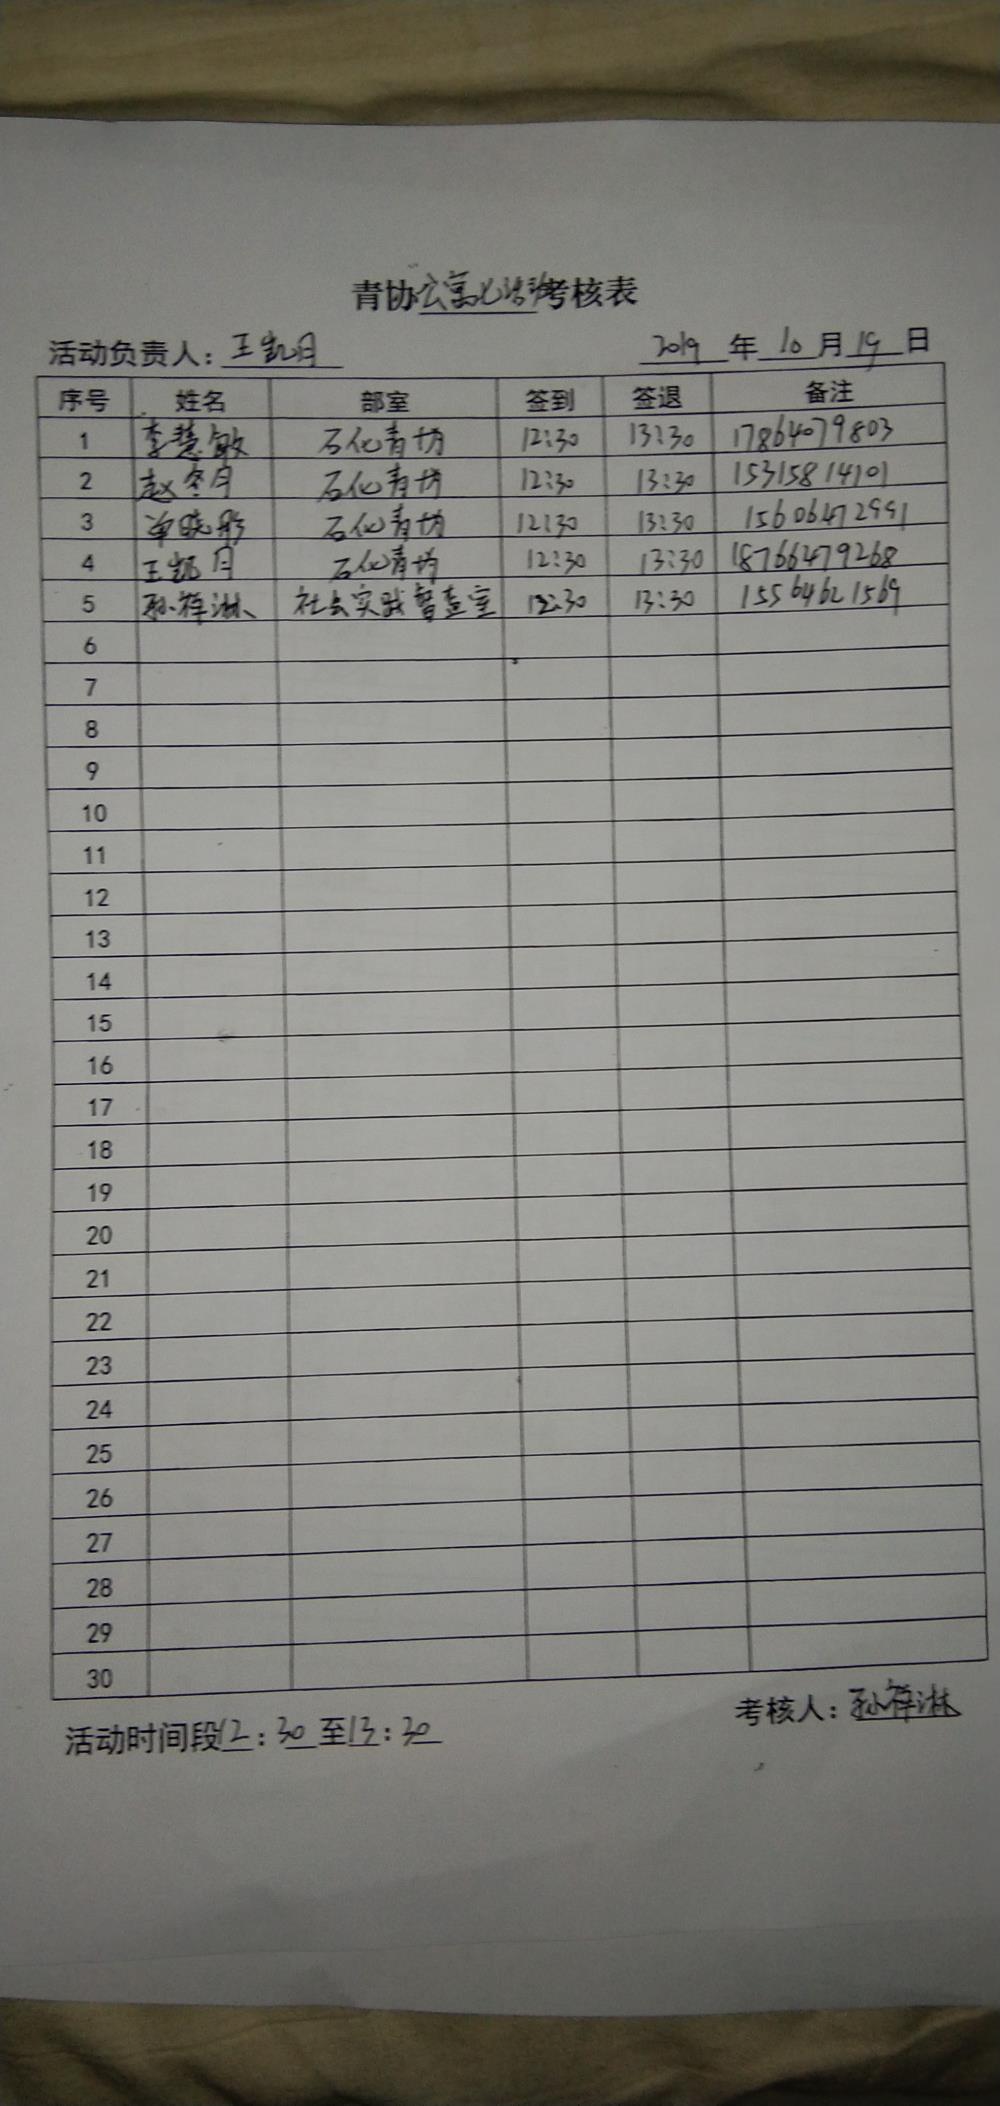 青协公寓心语考核表
活动负责人：王凯月 2019年10月19日
序号 姓名 部室 签到 签退 备注
1 李慧敏 石化青坊 12:30 13:30 17864079803
2 赵冬月 石化青坊 12:30 13:30 15315814101
3 单晓彤 石化青坊 12:30 13:30 15606472991
4 王凯月 石化青坊 12:30 13:30 18766479268
5 孙祥淋 社会实践督查室 12:30 13:30 15564621569
6
7
8
9
10
11
12
13
14
15
16
17
18
19
20
21
22
23
24
25
26
27
28
29
30
考核人：孙祥淋
活动时间段12：30至13：30